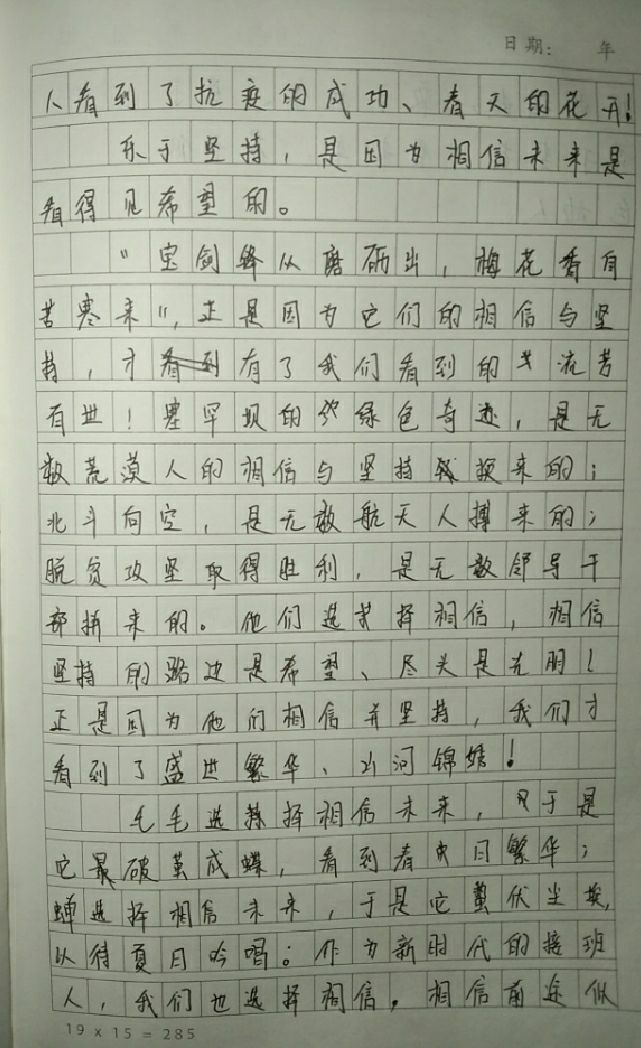 日期： 年
人看到了抗疫的成功、春天的花开！
乐于坚持，是因为相信未来是
看得见希望的。
"宝剑锋从磨砺出，梅花香自
苦寒来"，正是因为它们的相信与坚
持，才有了我们看到的
有世！塞罕坝的绿色奇迹，是无
数荒漠人的相信与坚持换来的；
北斗向空，是无数航天人搏来的；
脱贫攻坚取得胜利，是无数领导干
部拼来的。他们选择相信，相信
坚持的路边是希望、尽头是光明！
正是因为他们相信并坚持，我们才
看到了盛世繁华、山河锦绣！
毛毛选择相信未来，于是
它最破茧成蝶，看到春日繁华；
蝉选择相信未来，于是它蛰伏尘埃，
以待夏日吟唱。作为新时代的接班
人，我们也选择相信。相信前途似
19 x 15 = 285